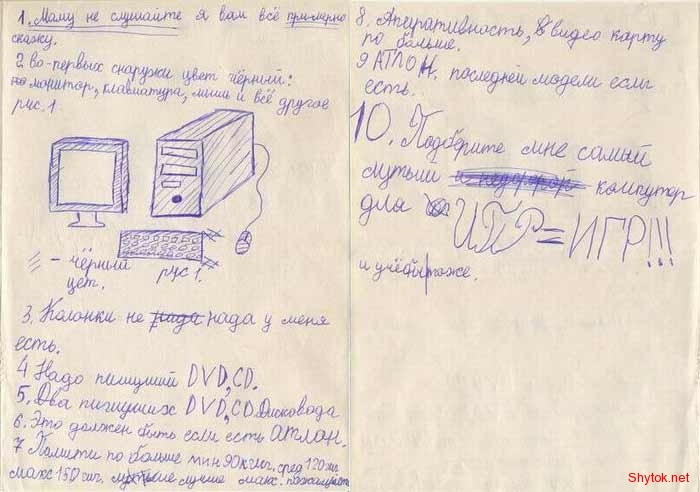 1. Маму не слушайте я вам всё примерно
скажу.
2 во-первых снаружи цвет чёрный:
монитор, клавиатура, мышь и всё другое
рис. 1.
- чёрный
цет.
рус 1.
3. Колонки не нада у меня
есть.
4 Надо пишущий DVD, CD.
5. Два пишущих DVD, CD Дисковода
6. Это должен быть если есть атлон.
7 Памити по больше мин 90 кгиг. сред 120 гиг.
макс 150 гиг. лучше макс. пожалуйста
8. Аперативность, & видео карту
по больше.
9 АТЛОН. последней модели если
есть.
10. Подберите мне самый
мутый компутор
для ИГР=ИГР!!!
и учёбы тоже.
Shytok.net